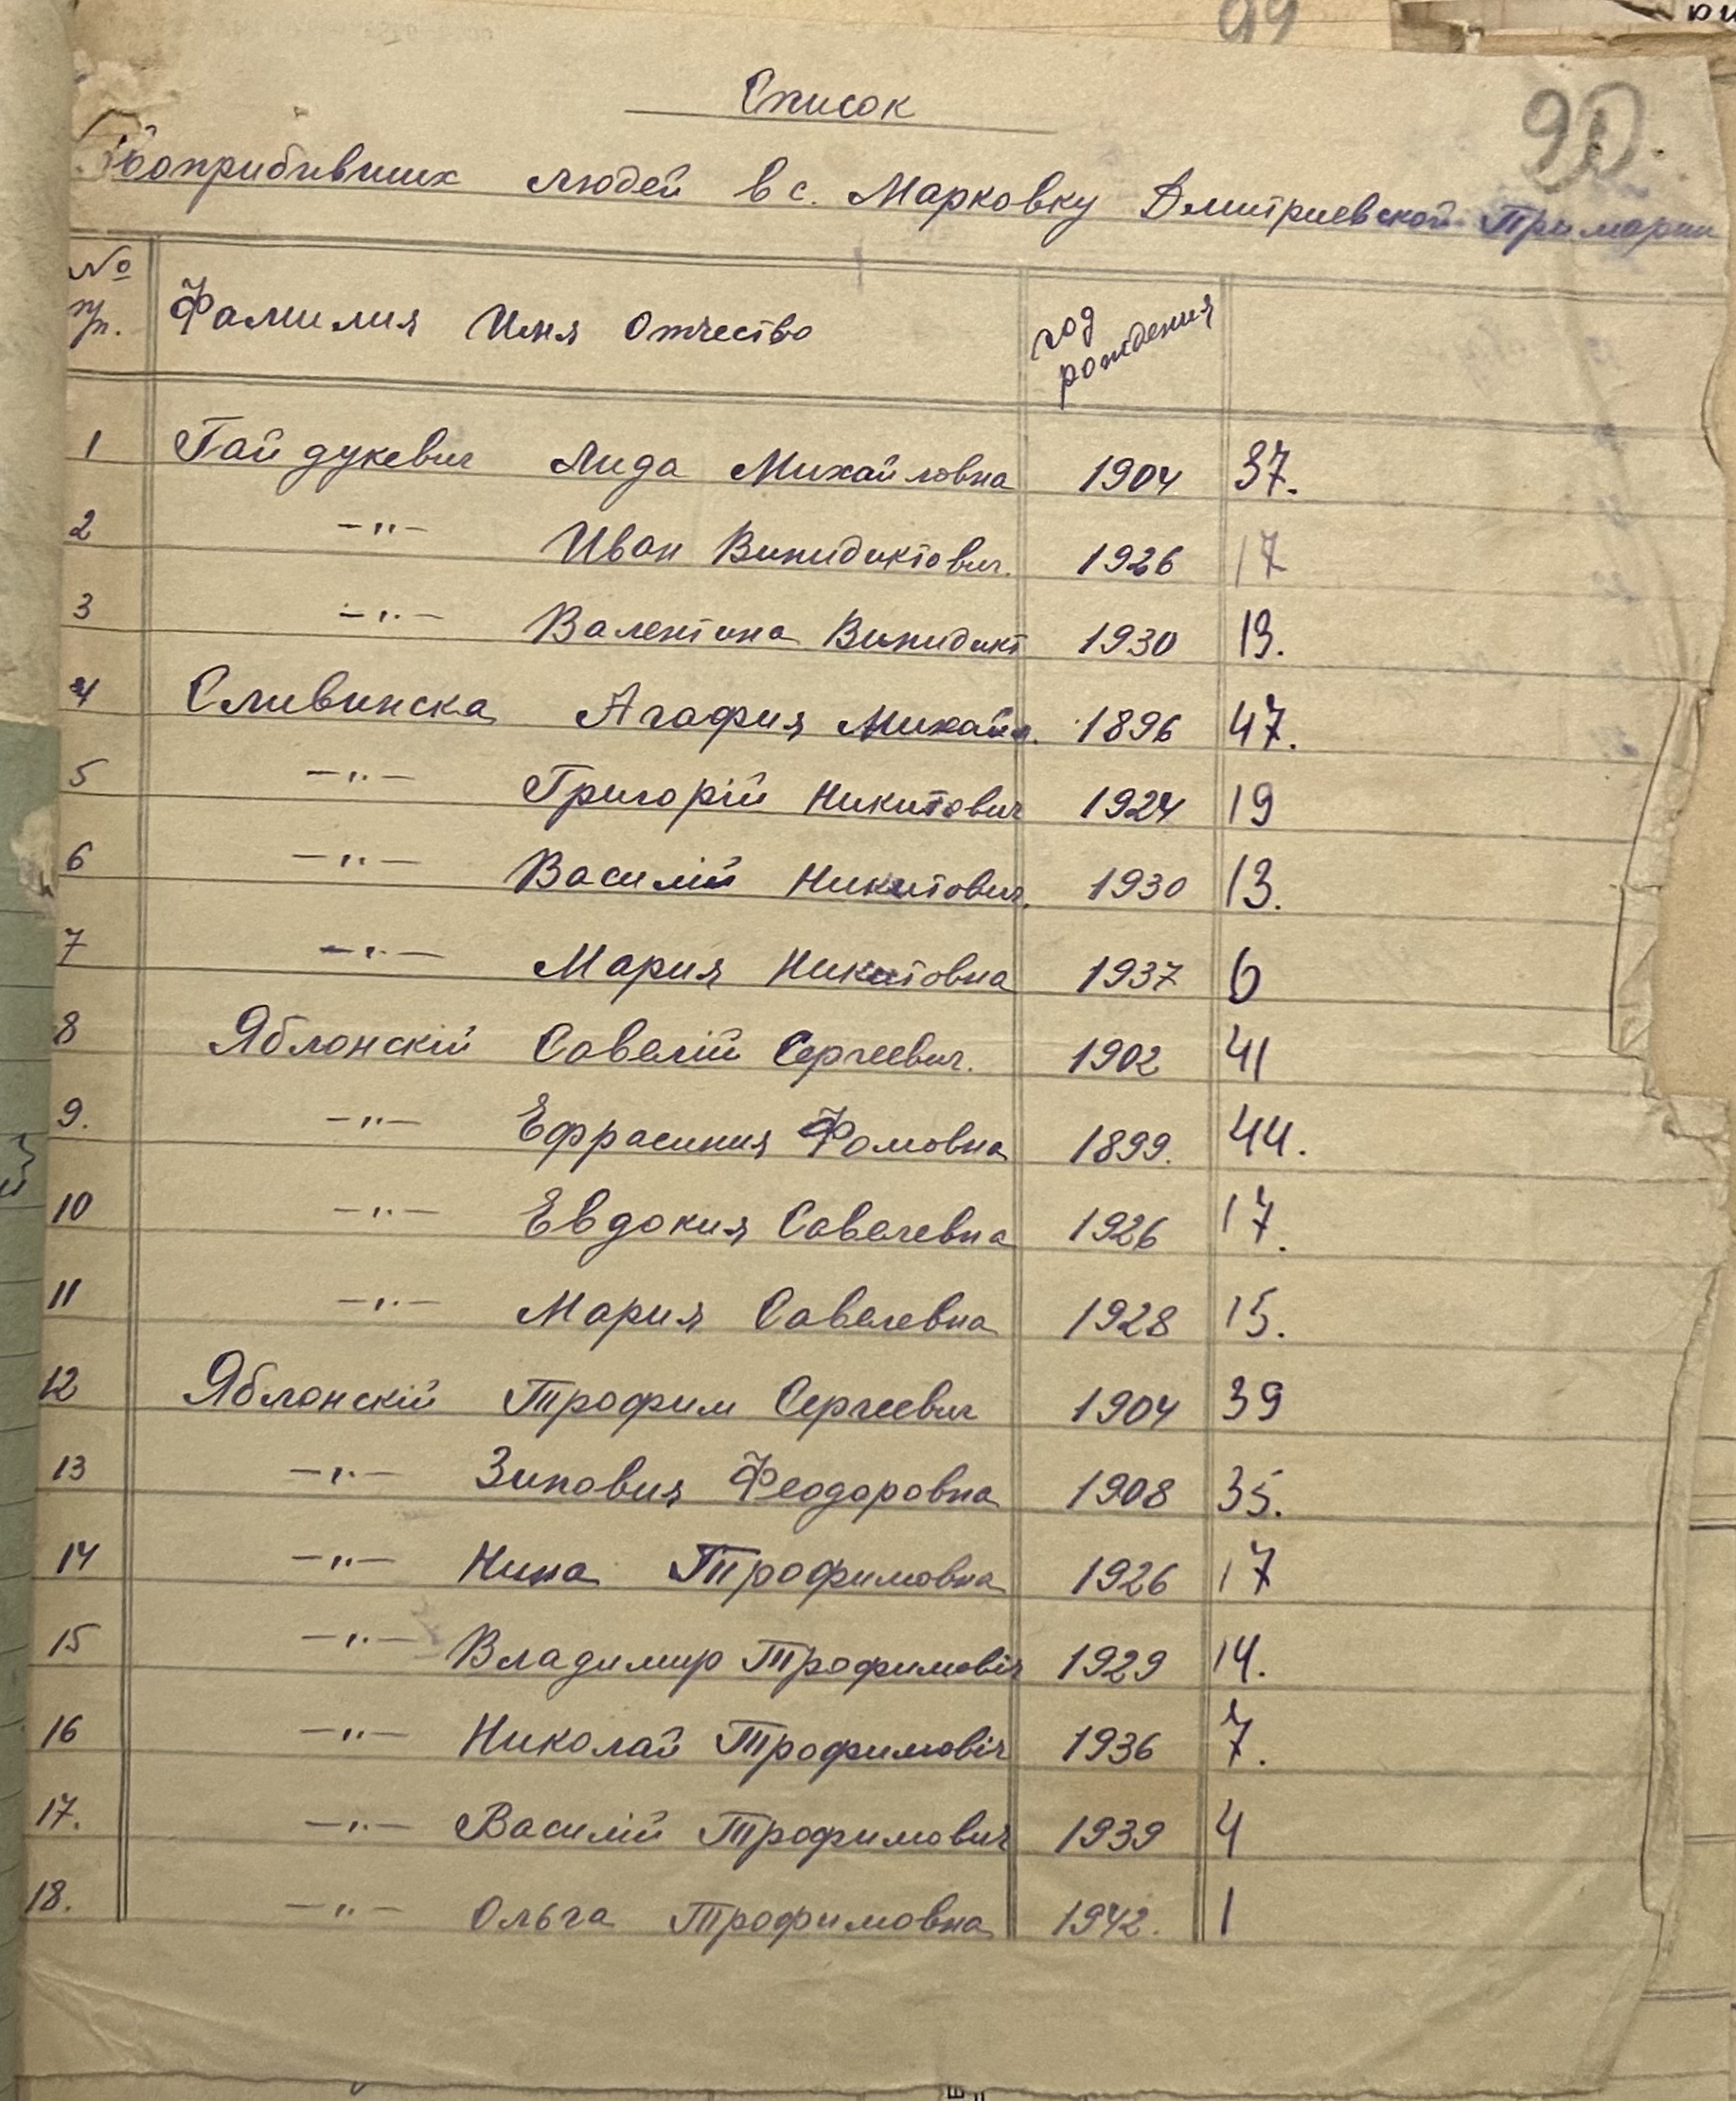 99
90.
Список
Новоприбивших людей в с. Марковку Дмитриевской Примарии
№ п/п. Фамилия Имя Отчество год рождения
1 Гайдукевич Лида Михайловна 1904 37.
2 —"— Иван Винидиктович. 1926 17
3 —"— Валентина Винидикт 1930 13.
4 Сливинска Агафия Михайл. 1896 47.
5 —"— Григорій Никитович 1924 19
6 —"— Василій Никитович. 1930 13.
7 —"— Мария Никитовна 1937 6
8 Яблонскій Савелій Сергеевич. 1902 41
9. —"— Ефрасиния Фомовна 1899. 44.
10 —"— Евдокия Савелевна 1926 17.
11 —"— Мария Савелевна 1928 15.
12 Яблонскій Трофим Сергеевич 1904 39
13 —"— Зиновия Феодоровна 1908 35.
14 —"— Нина Трофимовна 1926 17
15 —"— Владимир Трофимовіч 1929 14.
16 —"— Николай Трофимовіч 1936 7.
17. —"— Василій Трофимович 1939 4
18. —"— Ольга Трофимовна 1942. 1